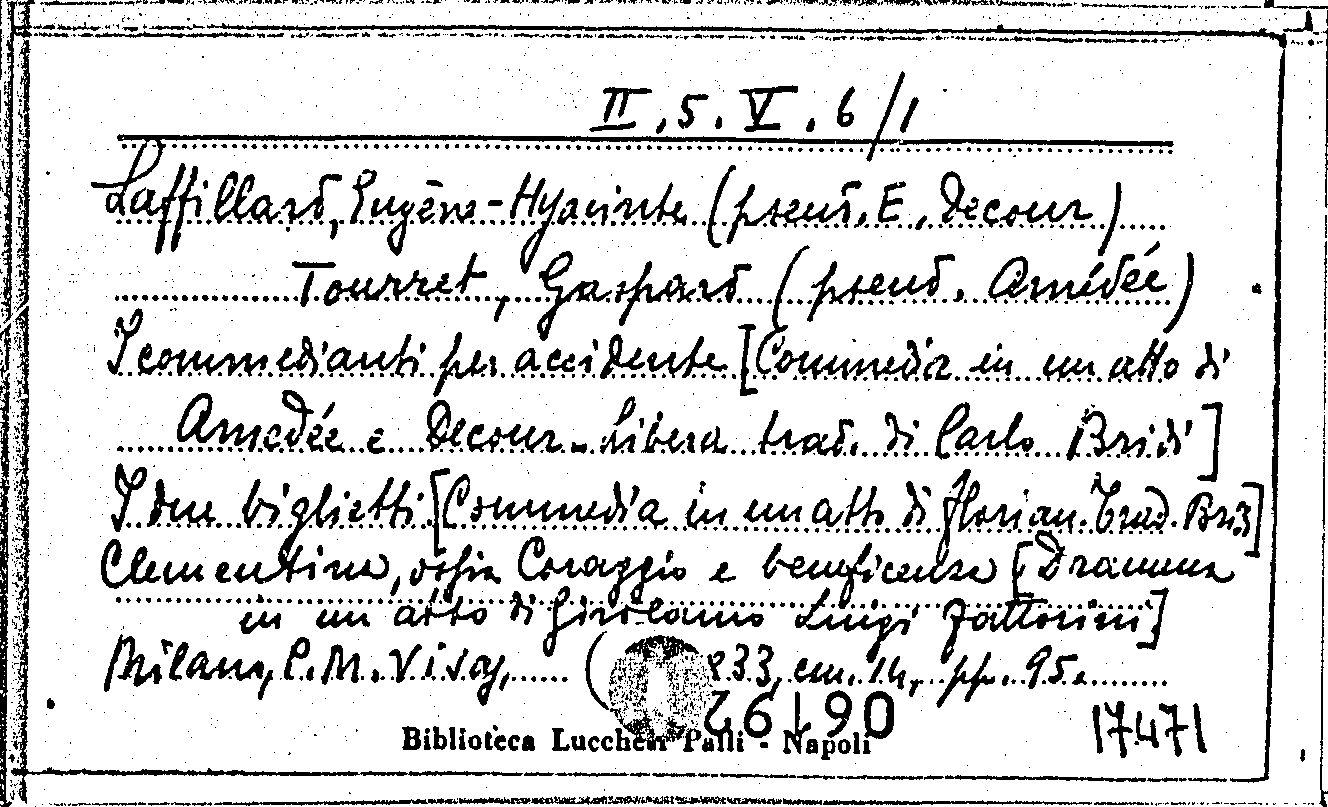 II.5.V.6/1
Laffillard, Eugène-Hyacinte (pseud. E. Decour)
Tourret, Gaspard (pseud. Amédée)
I commedianti per accidente [Commedia in un atto di
Amedée e Decour. Libera trad. di Carlo Bridi]
I due biglietti [Commedia in un atto di Florian. Trad. Bridi]
Clementina, ossia Coraggio e beneficenza [Dramma
in un atto di Girolamo Luigi Fattorini]
Milano, P. M. Visaj, 833, cm. 14, pp. 95.
06192
Biblioteca Lucchesi Palli - Napoli
17471